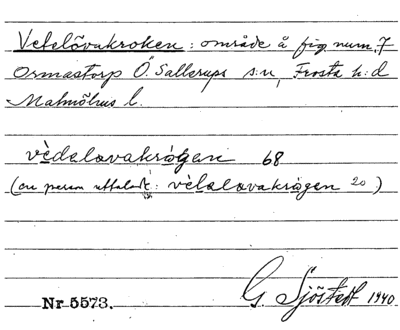 Vetelövakroken: område å fig. num. 7
Ormastorp Ö. Sallerups s:n, Frosta h:d
Malmöhus l.
vèdelovakrògen 68
(en person uttalade: vèlalovakrògen 20)
G. Sjöstedt 1940
Nr 5573.